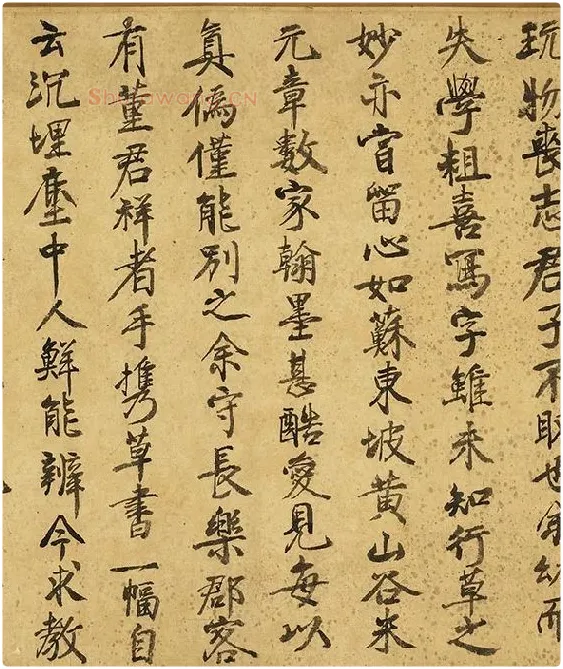 玩物喪志君子不取也余幼而
失學粗喜寫字雖未知行草之
妙亦嘗留心如蘇東坡黃山谷米
元章數家翰墨甚酷愛見每以
真偽僅能別之余守長樂郡客
有董君祥者手攜草書一幅自
云沉埋塵中人鮮能辨今求教